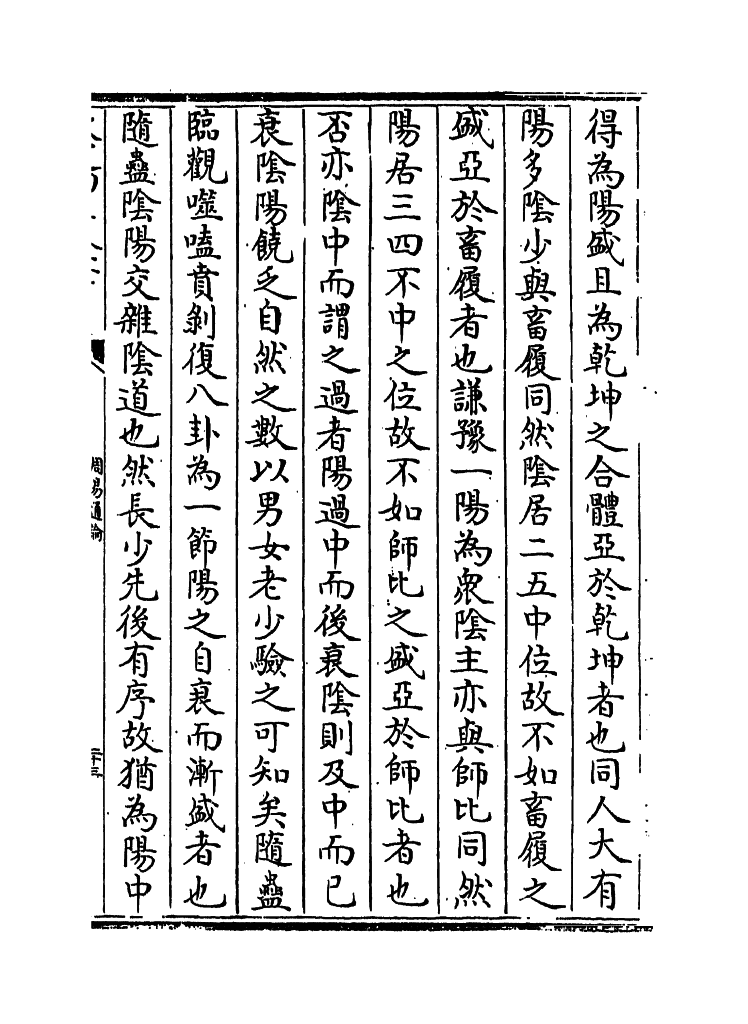 得為陽盛且為乾坤之合體亞於乾坤者也同人大有
陽多陰少與畜履同然陰居二五中位故不如畜履之
盛亞於畜履者也謙豫一陽為衆陰主亦與師比同然
陽居三四不中之位故不如師比之盛亞於師比者也
否亦陰中而謂之過者陽過中而後衰陰則及中而已
衰陰陽饒乏自然之數以男女老少驗之可知矣隨蠱
臨觀噬嗑賁剝復八卦為一節陽之自衰而漸盛者也
隨蠱陰陽交雜陰道也然長少先後有序故猶為陽中
周易通論
二十三